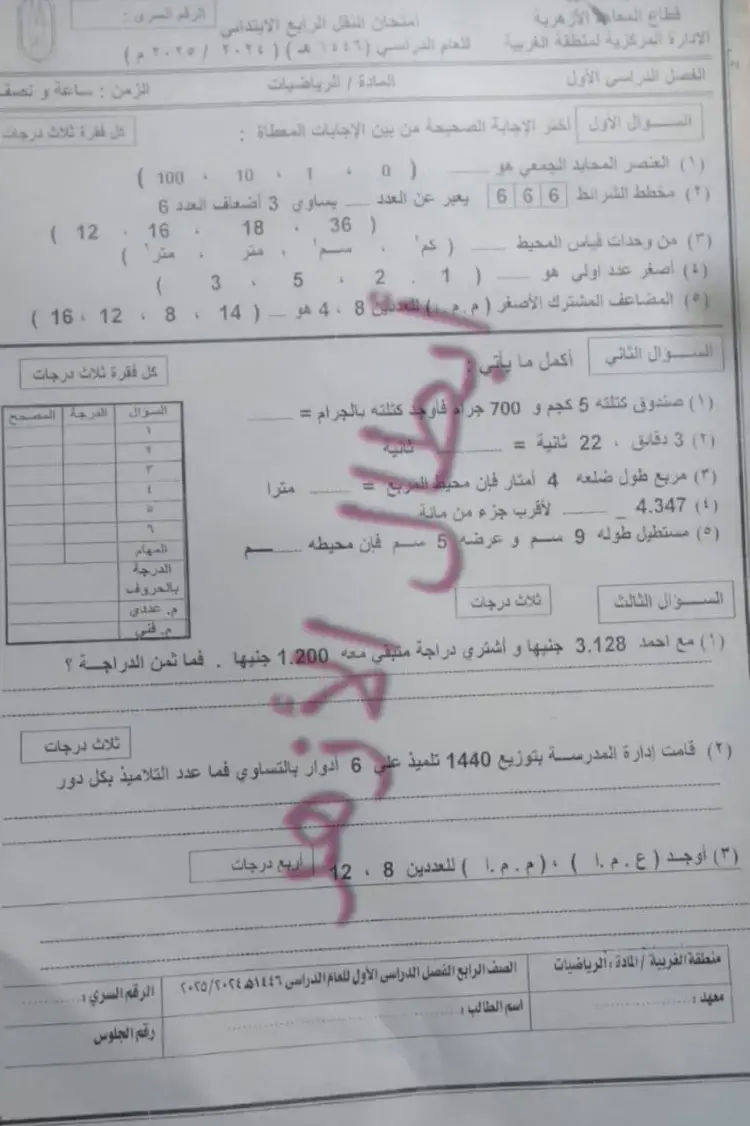 قطاع المعاهد الأزهرية
الإدارة المركزية لمنطقة الغربية
امتحان النقل الرابع الابتدائي
للعام الدراسي (١٤٤٦ هـ) ( ٢٠٢٤ / ٢٠٢٥ م )
الرقم السري :
الفصل الدراسي الأول
المادة / الرياضيات
الزمن : ساعة و نصف
السؤال الأول
أختر الإجابة الصحيحة من بين الإجابات المعطاة :
كل فقرة ثلاث درجات
(١) العنصر المحايد الجمعي هو ...... ( 0 ، 1 ، 10 ، 100 )
(٢) مخطط الشرائط 6 6 6 يعبر عن العدد .... يساوي 3 أضعاف العدد 6
( 36 ، 18 ، 16 ، 12 )
(٣) من وحدات قياس المحيط ...... ( كم² ، سم² ، متر ، متر² )
(٤) أصغر عدد اولي هو ...... ( 1 ، 2 ، 5 ، 3 )
(٥) المضاعف المشترك الأصغر ( م.م.أ ) للعددين 8 ، 4 هو .... ( 14 ، 8 ، 12 ، 16 )
السؤال الثاني
أكمل ما يأتي :
كل فقرة ثلاث درجات
(١) صندوق كتلته 5 كجم و 700 جرام فأوجد كتلته بالجرام = ......
(٢) 3 دقائق ، 22 ثانية = ............ ثانية
(٣) مربع طول ضلعه 4 أمتار فإن محيط المربع = ...... مترا
(٤) 4.347 _ ...... لأقرب جزء من مائة
(٥) مستطيل طوله 9 سم و عرضه 5 سم فإن محيطه ...... سم
السؤال الدرجة المصحح
١
٢
٣
٤
٥
٦
المهام
الدرجة بالحروف
م. عددي
م. فني
السؤال الثالث
ثلاث درجات
(١) مع احمد 3.128 جنيها و أشتري دراجة متبقي معه 1.200 جنيها . فما ثمن الدراجة ؟
ثلاث درجات
(٢) قامت إدارة المدرسة بتوزيع 1440 تلميذ علي 6 أدوار بالتساوي فما عدد التلاميذ بكل دور
(٣) أوجد ( ع . م . ا ) ، ( م . م . ا ) للعددين 8 ، 12
أربع درجات
منطقة الغربية / المادة : الرياضيات
الصف الرابع الفصل الدراسى الأول للعام الدراسى ١٤٤٦هـ ٢٠٢٥/٢٠٢٤
الرقم السري :
معهد :
اسم الطالب :
رقم الجلوس
ابطال الأزهر